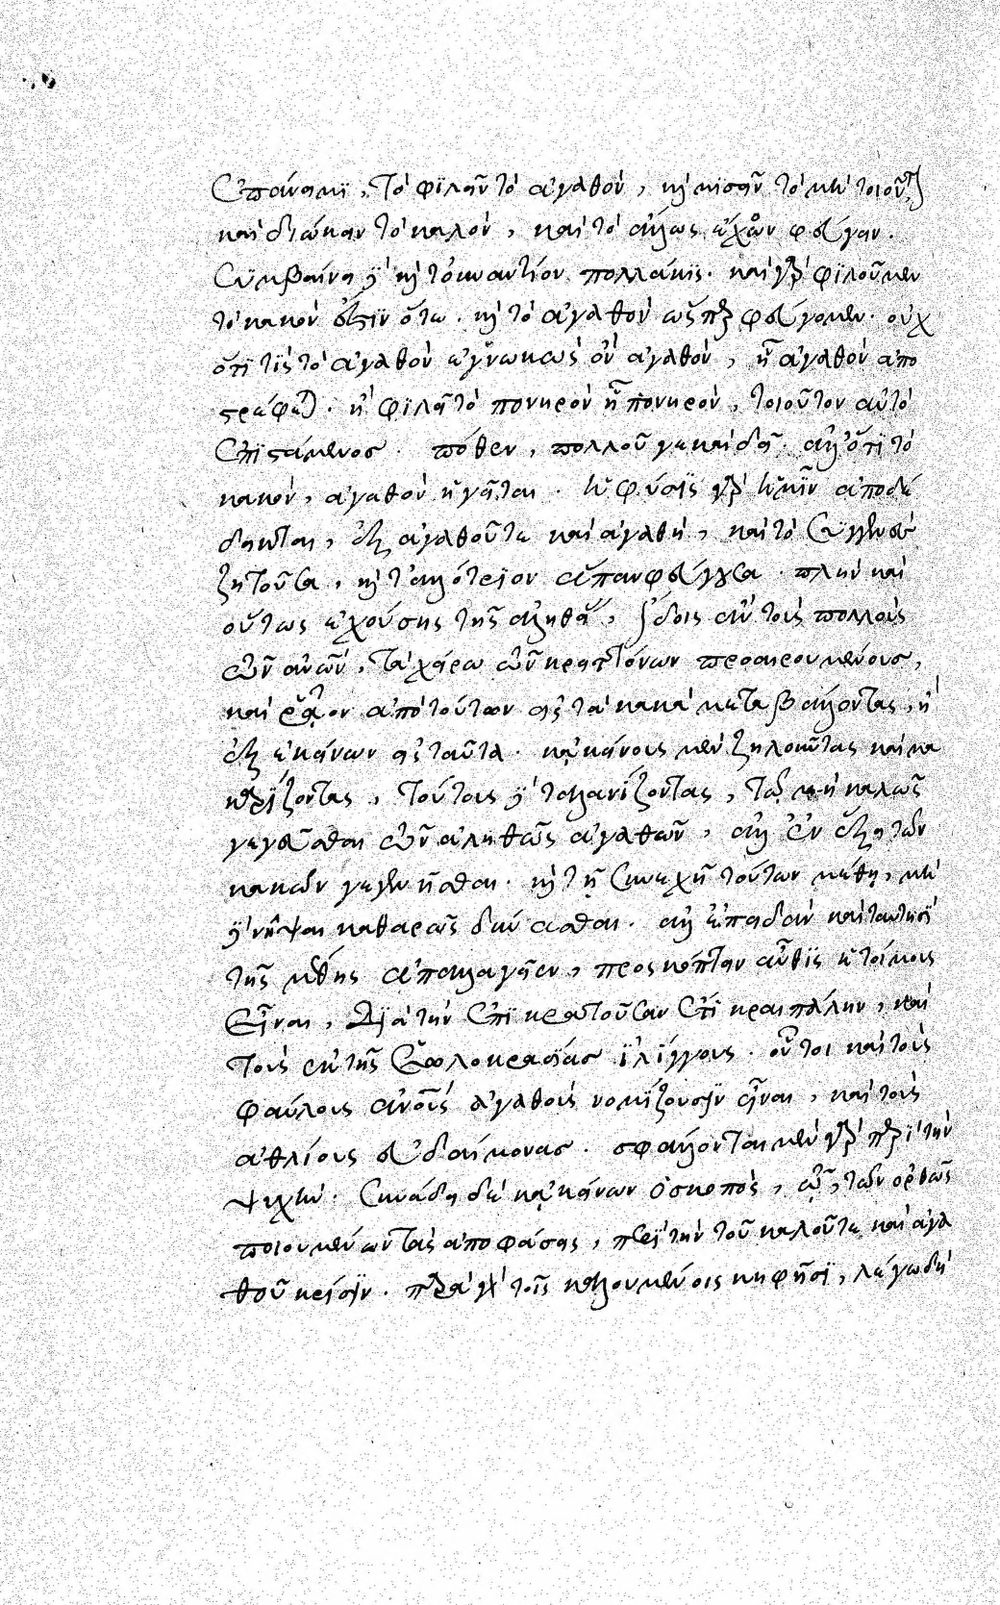 ἐπάναγκες, τὸ φιλεῖν τὸ ἀγαθόν, καὶ μισεῖν τὸ μὴ τοιοῦτον
καὶ διώκειν τὸ καλόν, καὶ τὸ ἄλλως ἔχον φεύγειν.
συμβαίνει γε καὶ τὸ ἐναντίον πολλάκις. καὶ γὰρ φιλοῦμεν
τὸ κακὸν ἔστιν ὅτε. καὶ τὸ ἀγαθὸν ὥσπερ φεύγομεν. οὐχ
ὅτι τὶς τὸ ἀγαθὸν ἐγνωκὼς ὂν ἀγαθόν, ᾗ ἀγαθὸν ἀπο
στρέφεται. ἢ φιλεῖ τὸ πονηρὸν ᾗ πονηρόν, τοιοῦτον αὐτὸ
ἐπιστάμενος. πόθεν, πολλοῦ γε καὶ δεῖ. ἀλλ' ὅτι τὸ
κακόν, ἀγαθὸν ἡγεῖται. ἡ φύσις γὰρ ἡμῖν ἀποδέ
δεικται, ἐξ ἀγαθοῦ τε καὶ ἀγαθή, καὶ τὸ συγγενὲς
ζητοῦσα, καὶ τἀλλότριον ἅπαν φεύγουσα. πλὴν καὶ
οὕτως ἐχούσης τῆς ἀληθείας, ἴδοις ἂν τοὺς πολλοὺς
τῶν ἀνων, τὰ χείρω τῶν κρειττόνων προαιρουμένους,
καὶ ῥᾷον ἀπὸ τούτων εἰς τὰ κακὰ μεταβάλλοντας, ἢ
ἐξ ἐκείνων εἰς ταῦτα. κἀκείνοις μὲν ζηλοῦντας καὶ μα
καρίζοντας, τούτους γε ταλανίζοντας, τῷ μὴ καλῶς
γεγεῦσθαι τῶν ἀληθῶς ἀγαθῶν, ἀλλ' ἐν ἕξει τῶν
κακῶν γεγενῆσθαι. καὶ τῇ συνεχῇ τούτων μέθῃ, μη
γε νῆψαι καθαρῶς δύνασθαι. ἀλλ' ἐπειδὰν καὶ ταυτησὶ
τῆς μέθης ἀπαλλαγεῖεν, προσκόπτειν αὖθις ἑτοίμους
εἶναι, διὰ τὴν ἐπικρατοῦσαν ἔτι κραιπάλην, καὶ
τοὺς ἐκ τῆς ἑωλοκρασίας ἰλίγγους. οὗτοι καὶ τοὺς
φαύλους ἀνους ἀγαθοὺς νομίζουσιν εἶναι, καὶ τοὺς
ἀθλίους εὐδαίμονας. σφάλλονται μὲν γὰρ περὶ τὴν
ψυχήν. συνάδει δὲ κἀκείνων ὁ σκοπός, τῶν ὀρθῶς
ποιουμένων τὰς ἀποφάσεις, περὶ τὴν τοῦ καλοῦ τε καὶ ἀγα
θοῦ κρίσιν. παρὰ γε τοῖς καλουμένοις κηφῆσι, λέγω δὴ